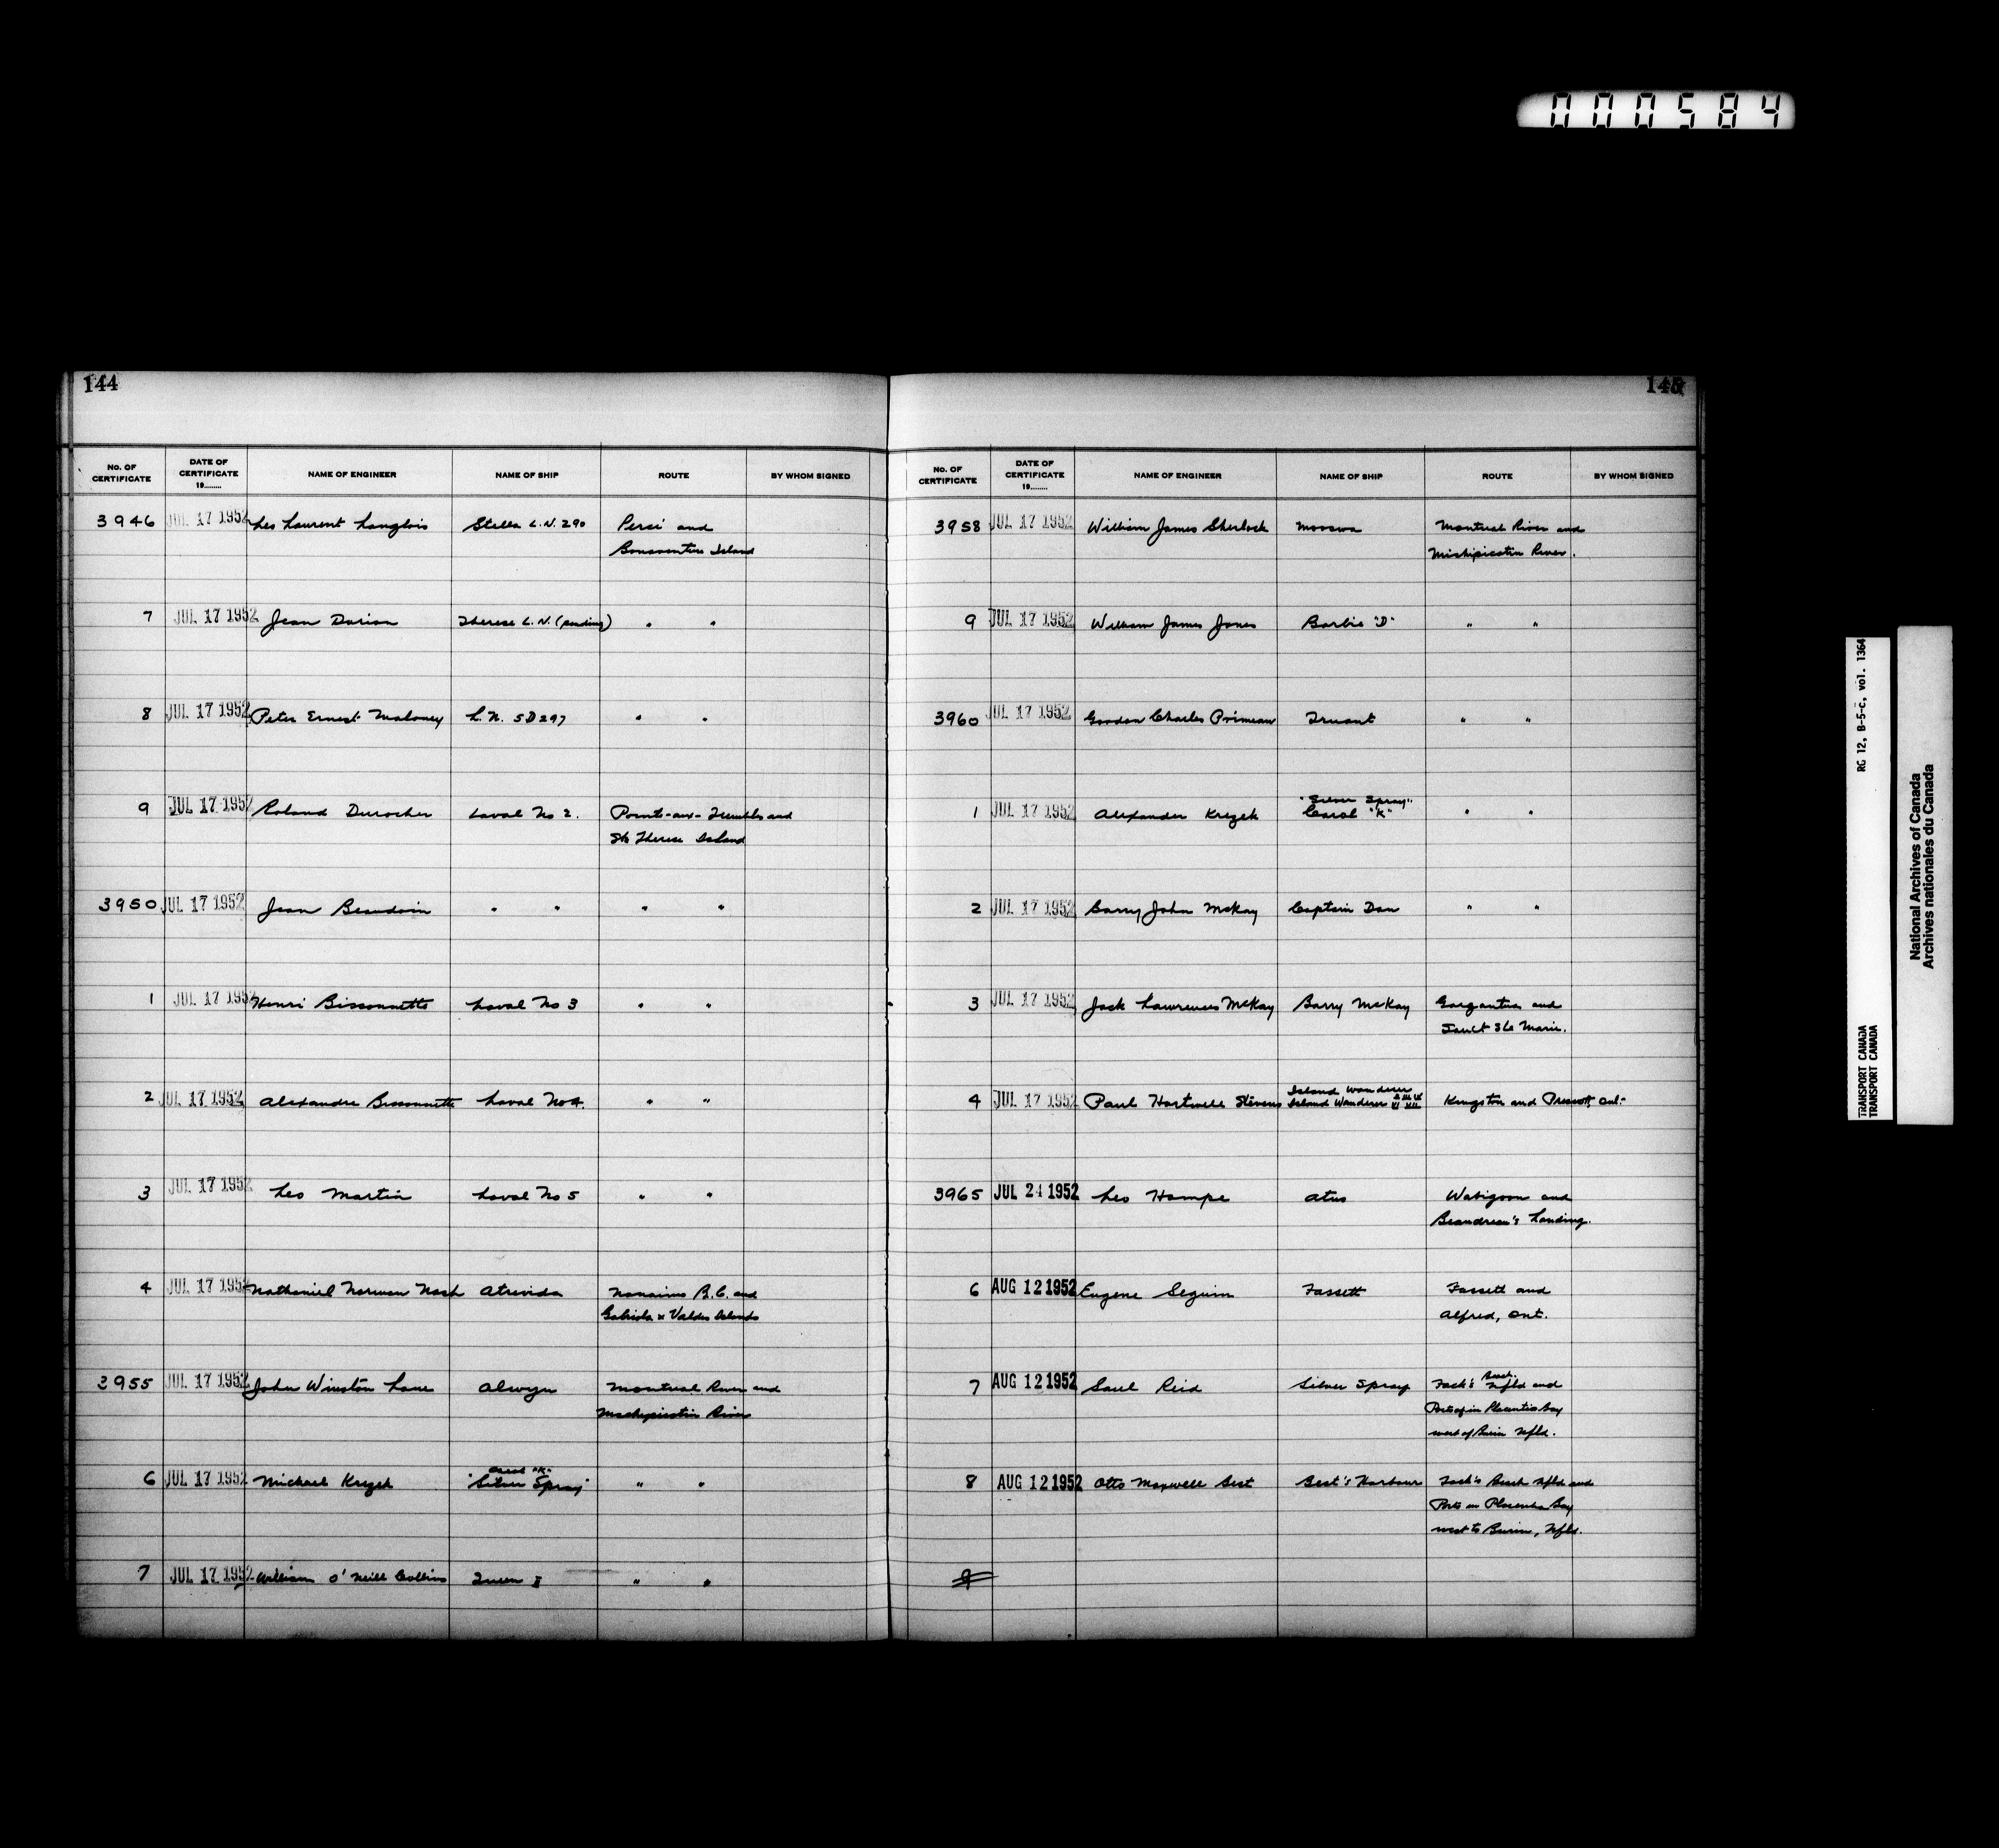 000584
144
No. OF CERTIFICATE DATE OF CERTIFICATE 19........ NAME OF ENGINEER NAME OF SHIP ROUTE BY WHOM SIGNED
3946 JUL 17 1952 Leo Laurent Langlois Stella L.N. 290 Perci and
Bonaventure Island
7 JUL 17 1952 Jean Dorion Therese L.N. (pending) " "
8 JUL 17 1952 Peter Ernest Maloney L.N. 5D297 " "
9 JUL 17 1952 Roland Durocher Laval No 2. Pointe-aux-Trembles and
Ste Therese Island
3950 JUL 17 1952 Jean Beaudoin " " " "
1 JUL 17 1952 Henri Bissonnette Laval No 3 " "
2 JUL 17 1952 Alexandre Bissonnette Laval No 4. " "
3 JUL 17 1952 Leo Martin Laval No 5 " "
4 JUL 17 1952 Nathaniel Norman Nash Atrevida Nanaimo B.C. and
Gabriola & Valdes Islands
3955 JUL 17 1952 John Winston Lane Alwyn Montreal River and
Michipicotin River
6 JUL 17 1952 Michael Krezek Carol "K"
"Silver Spray" " "
7 JUL 17 1952 William O'Neill Collins Queen I " "
145
No. OF CERTIFICATE DATE OF CERTIFICATE 19........ NAME OF ENGINEER NAME OF SHIP ROUTE BY WHOM SIGNED
3958 JUL 17 1952 William James Sherlock Mooswa Montreal River and
Michipicotin River.
9 JUL 17 1952 William James Jones Barbie "D" " "
3960 JUL 17 1952 Gordon Charles Primeau Truant " "
1 JUL 17 1952 Alexander Krezek "Silver Spray"
Carol "K" " "
2 JUL 17 1952 Barry John McKay Captain Dan " "
3 JUL 17 1952 Jack Lawrence McKay Barry McKay Gargantua and
Sault Ste Marie.
4 JUL 17 1952 Paul Hartwell Stevens Island Wanderer
Island Wanderer II III IV VI VII Kingston and Prescott, Ont.
3965 JUL 24 1952 Leo Hampe Atus Wabigoon and
Beaudreau's Landing.
6 AUG 12 1952 Eugene Seguin Fassett Fassett and
Alfred, Ont.
7 AUG 12 1952 Saul Reid Silver Spray Jack's Beach Nfld and
Ports in Placentia Bay
west of Burin Nfld.
8 AUG 12 1952 Otto Maxwell Best Best's Harbour Jack's Beach Nfld and
Ports in Placentia Bay
west to Burin, Nfld.
9
RG 12, B-5-c, vol. 1364
TRANSPORT CANADA
TRANSPORT CANADA
National Archives of Canada
Archives nationales du Canada